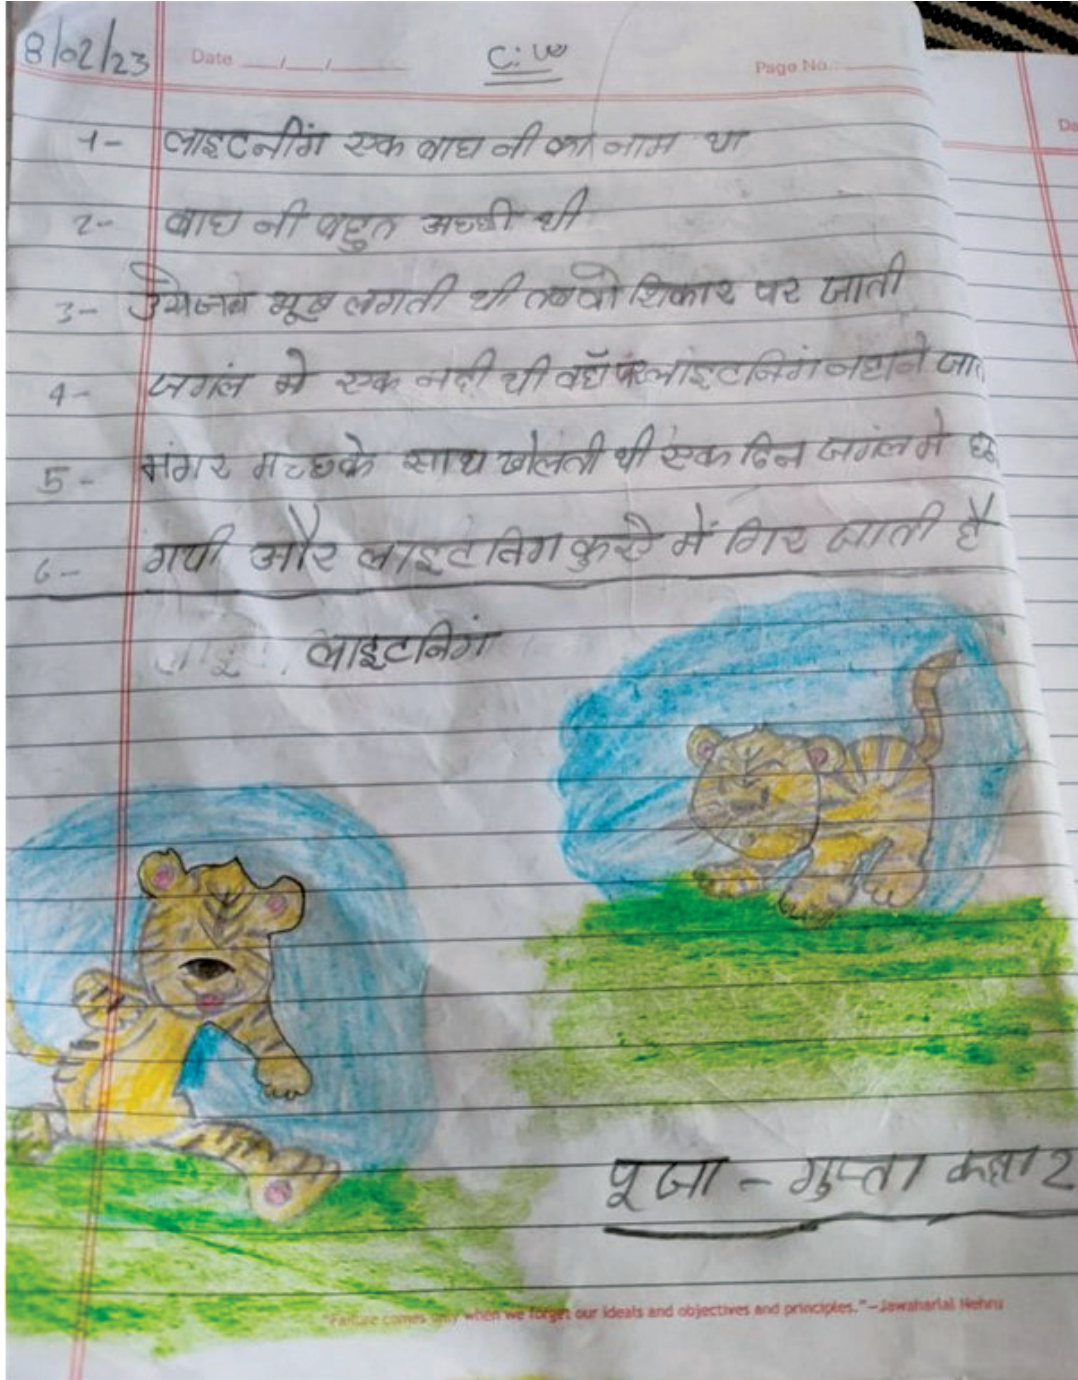 8/02/23
Date
C.W
Page No.
1- लाइटनींग एक बाघ नी का नाम था
2- बाघ नी बहुत अच्छी थी
3- उसेजब भूख लगती थी तबवो शिकार पर जाती
4- जगंल मे एक नदी थी वहाँ पर लाइटनिंग नहाने
5- मंगर मच्छके साथ खेलती थी एक दिन जगंल मे
6- गयी और लाइटनिग कुएे में गिर जाती है
लाइटनिगं
पूजा - गुप्ता कक्षा 2
"Failure comes only when we forget our ideals and objectives and principles." - Jawaharlal Nehru